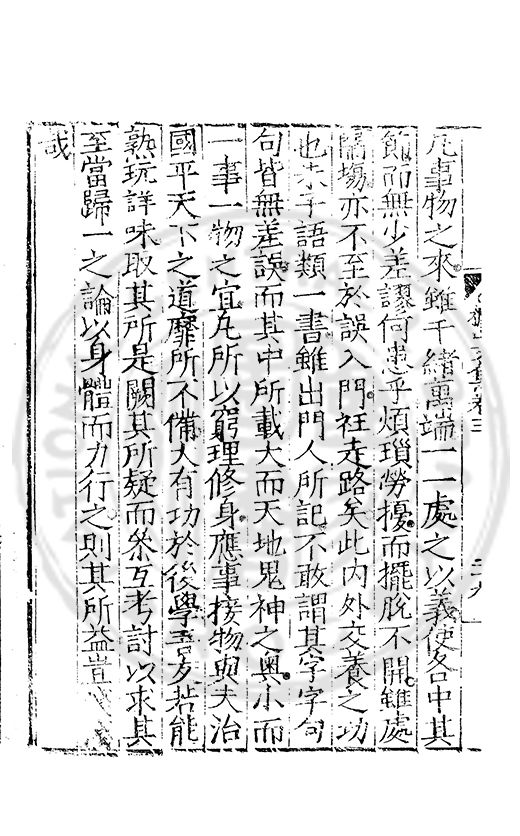 凡事物之來雖千緒萬端一一處之以義使各中其
節而無少差謬何患乎煩瑣勞擾而擺脫不開雖處
鬧塲亦不至於誤入門枉走路矣此内外交養之功
也朱子語類一書雖出門人所記不敢謂其字字句
句皆無差誤而其中所載大而天地鬼神之奥小而
一事一物之宜凡所以窮理修身應事接物與夫治
國平天下之道靡所不備大有功於後學吾友若能
熟玩詳味取其所是闕其所疑而叅互考討以求其
至當歸一之論以身體而力行之則其所益豈
哉